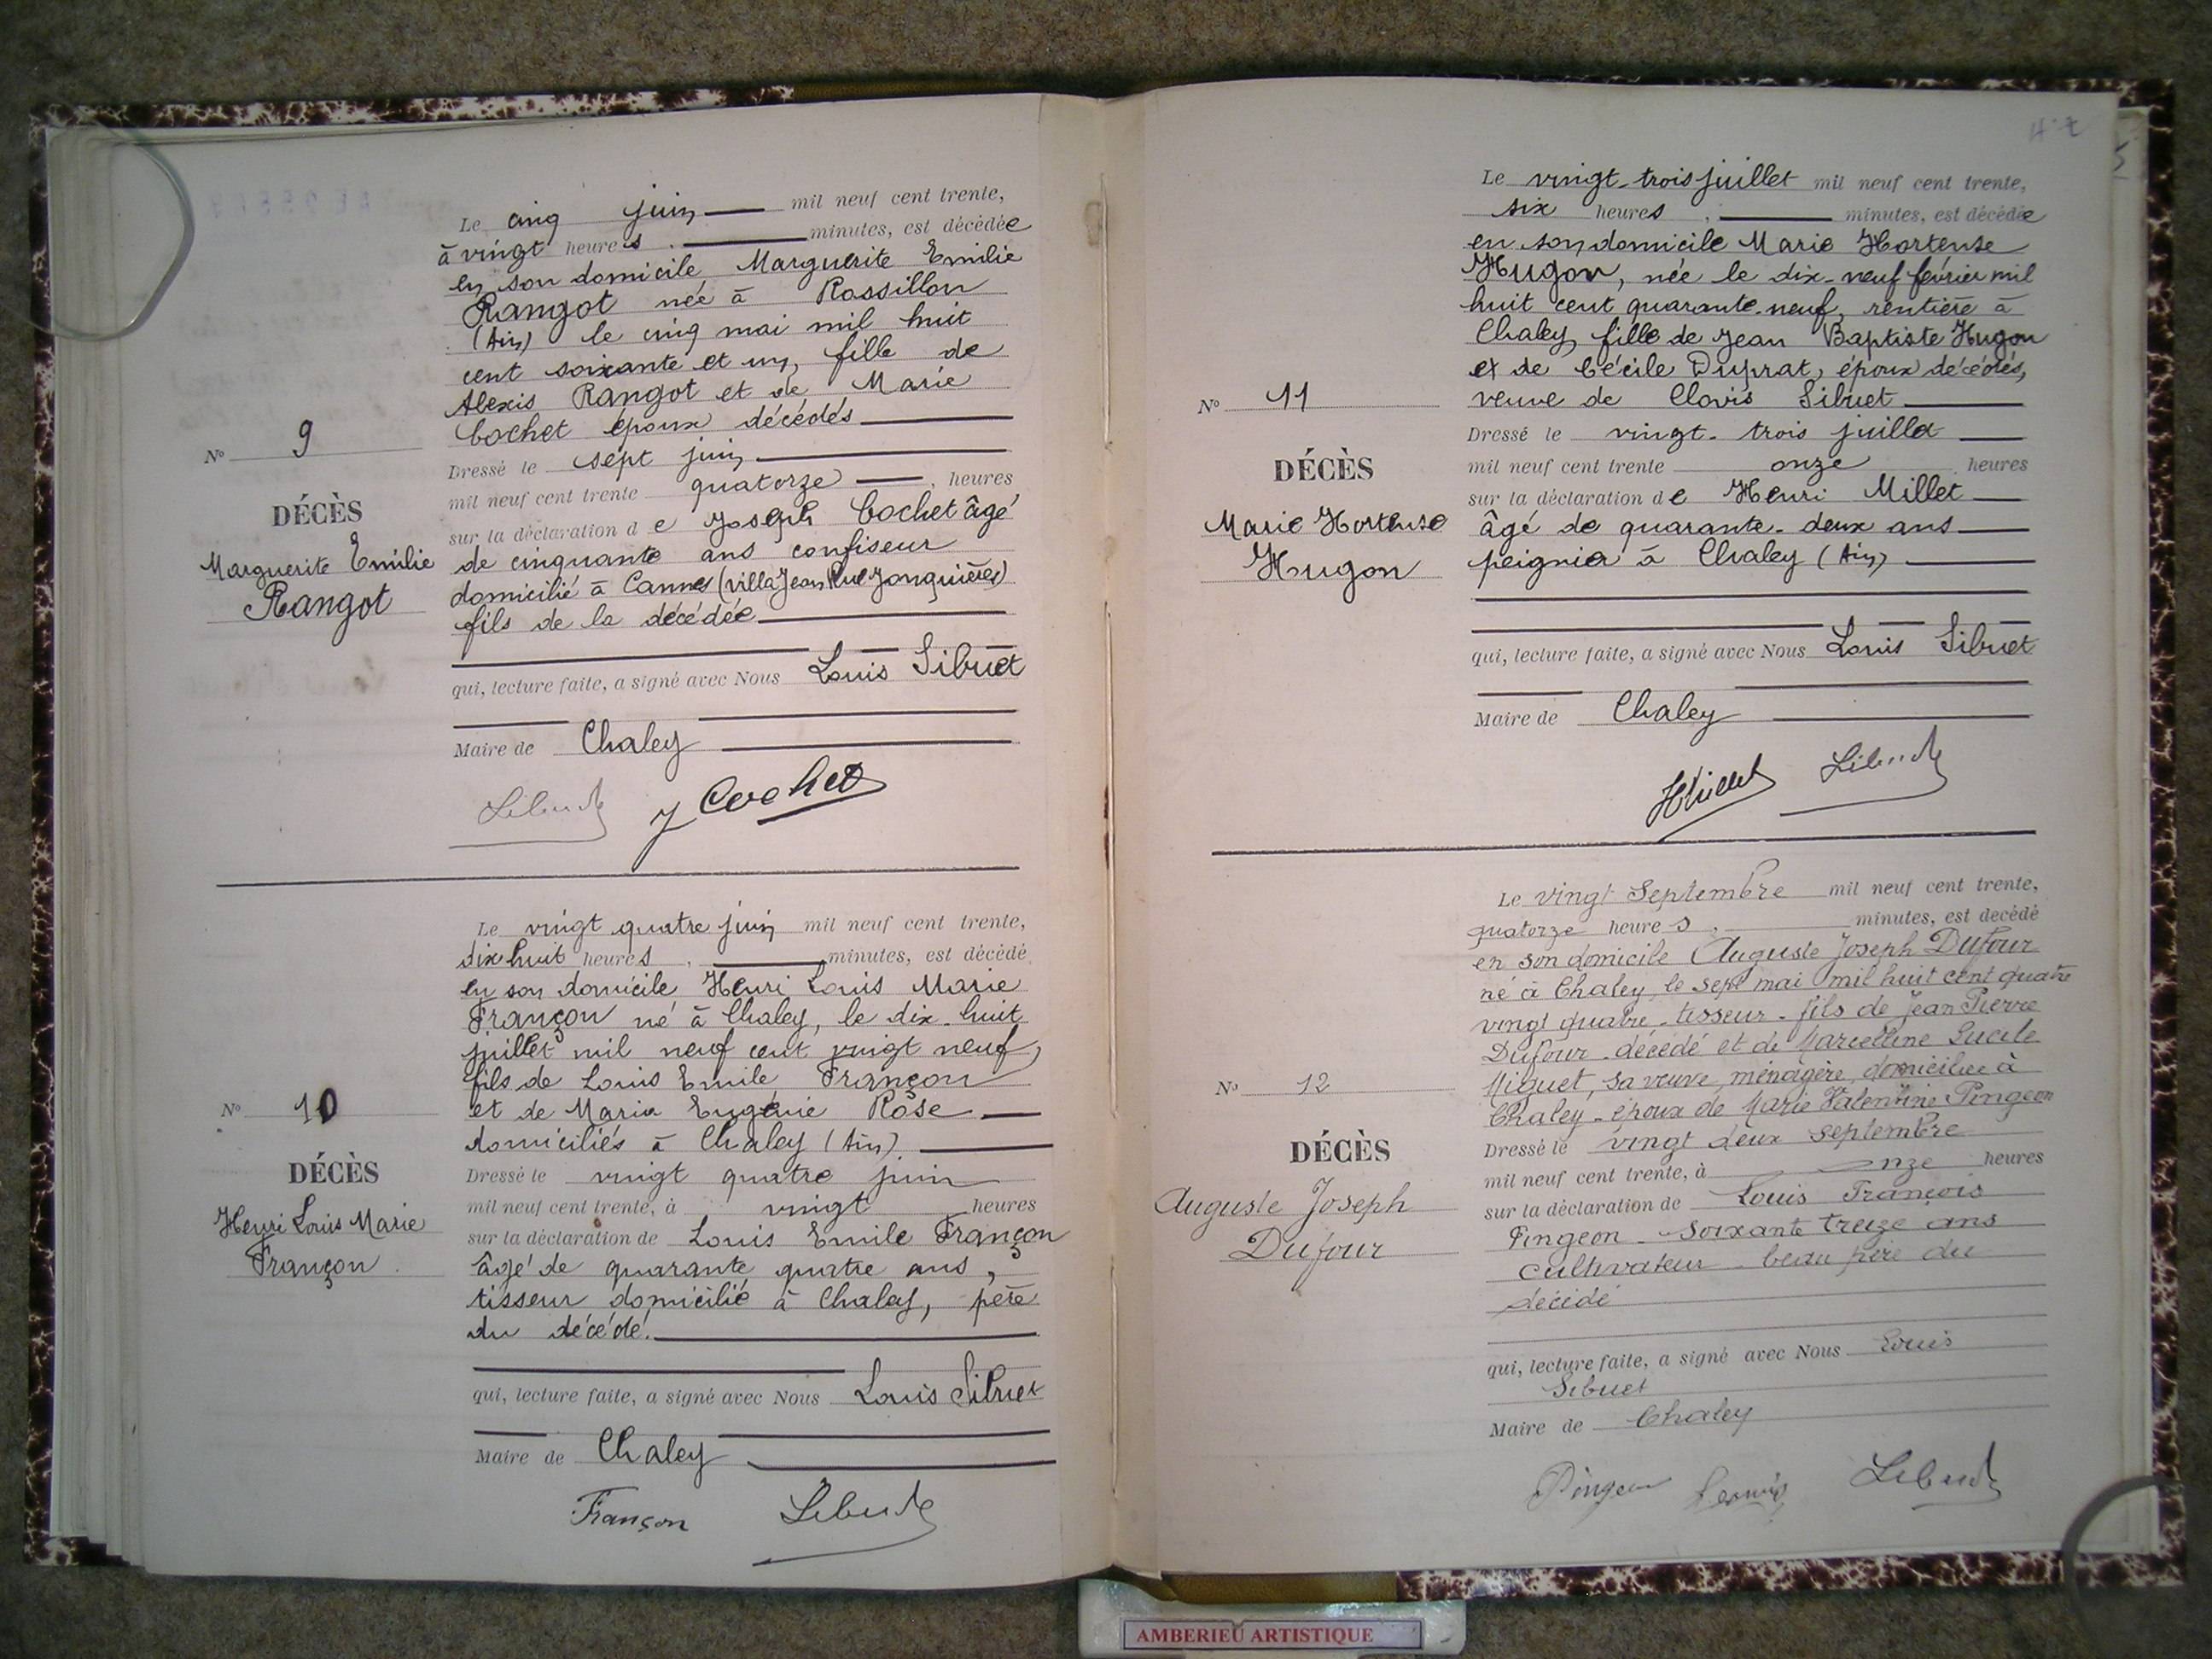 Le cinq juin mil neuf cent trente,
à vingt heures minutes, est décédée
en son domicile Marguerite Emilie
Rangot née à Rossillon
(Ain) le cinq mai mil huit
cent soixante et un, fille de
Alexis Rangot et de Marie
Cochet époux décédés
N° 9
DÉCÈS
Marguerite Emilie
Rangot
Dressé le sept juin
mil neuf cent trente quatorze, heures
sur la déclaration de Joseph Cochet âgé
de cinquante ans confiseur
domicilié à Cannes (villa Jean Rue Jonquières)
fils de la décédée
qui, lecture faite, a signé avec Nous Louis Sibuet
Maire de Chaley
Sibuet J Cochet
Le vingt quatre juin mil neuf cent trente,
dix huit heures, minutes, est décédé
en son domicile Henri Louis Marie
Françon né à Chaley, le dix-huit
juillet mil neuf cent vingt neuf,
fils de Louis Emile Françon
et de Maria Eugénie Rose
domiciliés à Chaley (Ain)
N° 10
DÉCÈS
Henri Louis Marie
Françon
Dressé le vingt quatre juin
mil neuf cent trente, à vingt heures
sur la déclaration de Louis Emile Françon
âgé de quarante quatre ans,
tisseur domicilié à Chaley, père
du décédé.
qui, lecture faite, a signé avec Nous Louis Sibuet
Maire de Chaley
Françon Sibuet
Le vingt-trois juillet mil neuf cent trente,
six heures, minutes, est décédée
en son domicile Marie Hortense
Hugon, née le dix-neuf février mil
huit cent quarante-neuf, rentière à
Chaley, fille de Jean Baptiste Hugon
et de Cécile Duprat, époux décédés,
veuve de Clovis Sibuet
N° 11
DÉCÈS
Marie Hortense
Hugon
Dressé le vingt-trois juillet
mil neuf cent trente onze heures
sur la déclaration de Henri Millet
âgé de quarante-deux ans
peignier à Chaley (Ain)
qui, lecture faite, a signé avec Nous Louis Sibuet
Maire de Chaley
HMillet Sibuet
Le vingt Septembre mil neuf cent trente,
quatorze heures, minutes, est decédé
en son domicile Auguste Joseph Dufour
né à Chaley, le sept mai mil huit cent quatre
vingt quatre - tisseur - fils de Jean Pierre
Dufour - décédé et de Marcelline Lucile
Miguet, sa veuve, ménagère, domiciliée à
Chaley - époux de Marie Valentine Pingeon
N° 12
DÉCÈS
Auguste Joseph
Dufour
Dressé le vingt deux septembre
mil neuf cent trente, à onze heures
sur la déclaration de Louis François
Pingeon - soixante treize ans
cultivateur - beau père du
décédé
qui, lecture faite, a signé avec Nous Louis
Sibuet
Maire de Chaley
Pingeon Louis Sibuet
AMBERIEU ARTISTIQUE